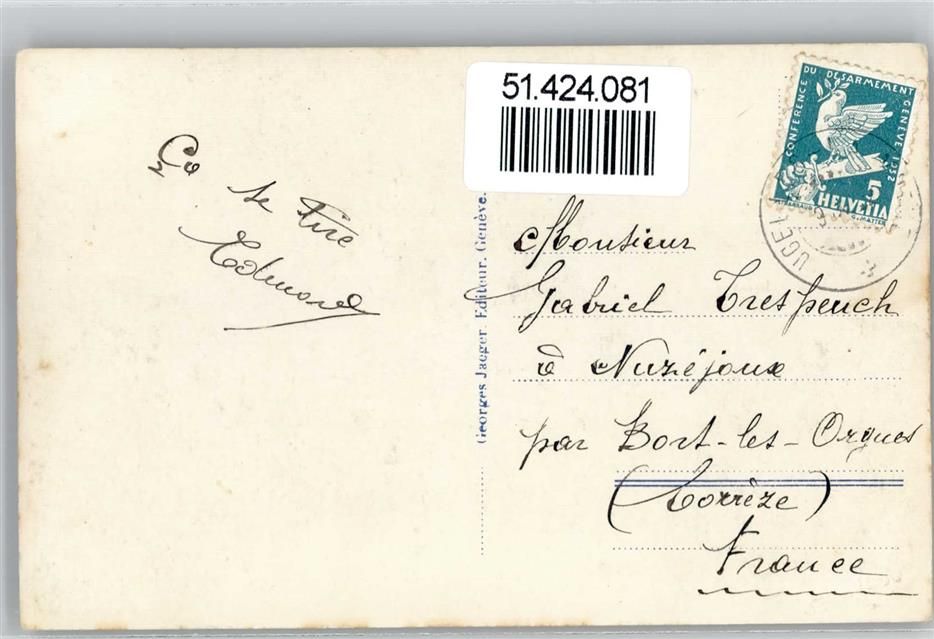 51.424.081
CONFERENCE DU DESARMEMENT GENÈVE 1932
5
HELVETIA
Ça se tire
Edmond
Georges Jaeger, Editeur, Genève.
Monsieur
Gabriel Trespeuch
à Nuzéjoux
par Bort-les-Orgues
(Corrèze)
France